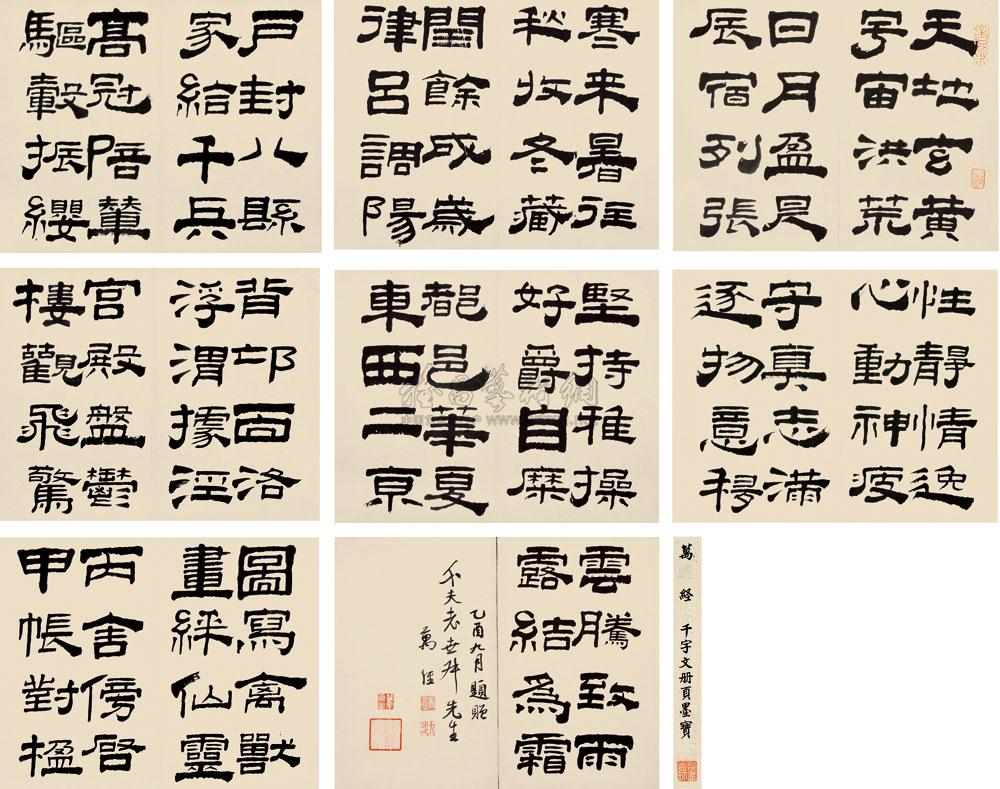 天地玄黄
宇宙洪荒
日月盈昃
辰宿列張
寒来暑往
秋收冬藏
閏餘成歲
律呂調陽
戶封八縣
家給千兵
高冠陪輦
驅轂振纓
性靜情逸
心動神疲
守真志滿
逐物意移
堅持雅操
好爵自縻
都邑華夏
東西二京
背邙面洛
浮渭據涇
宮殿盤鬱
樓觀飛驚
萬經 千字文册頁墨寶
雲騰致雨
露結為霜
乙酉九月題贈
夫老世先生
萬經
圖寫禽獸
畫綵仙靈
丙舍傍啓
甲帳對楹